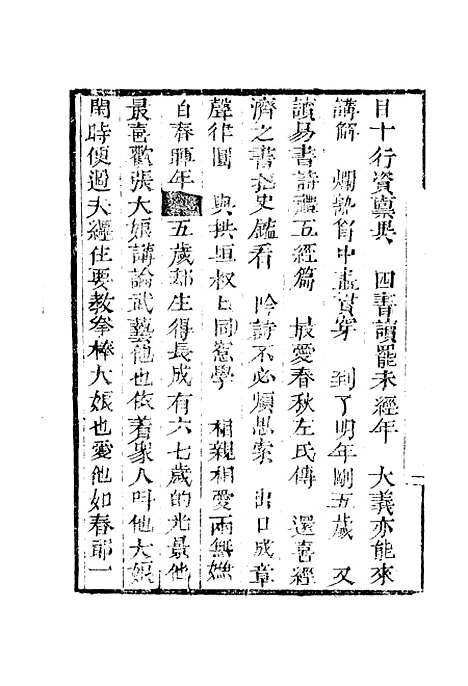 目十行資稟異　四書讀罷未經年　大義亦能來
講解　爛熟胷中盡貫穿　到了明年剛五歲　又
讀易書詩禮五經篇　最愛春秋左氏傳　還喜經
濟之書把史鑑看　吟詩不必煩思索　出口成章
聲律圓　與拱垣叔上同窻學　相親相愛兩無嫌
自春暉年五歲却生得長成有六七歲的光景他
最喜歡張大娘講論武藝他也依着眾人呌他大娘
閑時便過大經住要教拳棒大娘也愛他如春郎一